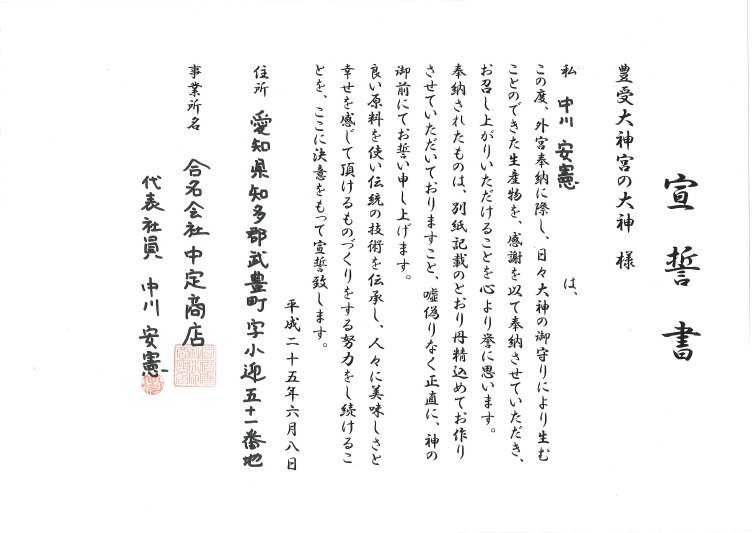 宣誓書
豊受大神宮の大神 様
私 中川 安憲 は、
この度、外宮奉納に際し、日々大神の御守りにより生む
ことのできた生産物を、感謝を以て奉納させていただき、
お召し上がりいただけることを心より誉に思います。
奉納されたものは、別紙記載のとおり丹精込めてお作り
させていただいておりますこと、嘘偽りなく正直に、神の
御前にてお誓い申し上げます。
良い原料を使い伝統の技術を伝承し、人々に美味しさと
幸せを感じて頂けるものづくりをする努力をし続けるこ
とを、ここに決意をもって宣誓致します。
平成二十五年六月八日
住所 愛知県知多郡武豊町字小迎五十一番地
事業所名 合名会社 中定商店
代表社員 中川 安憲